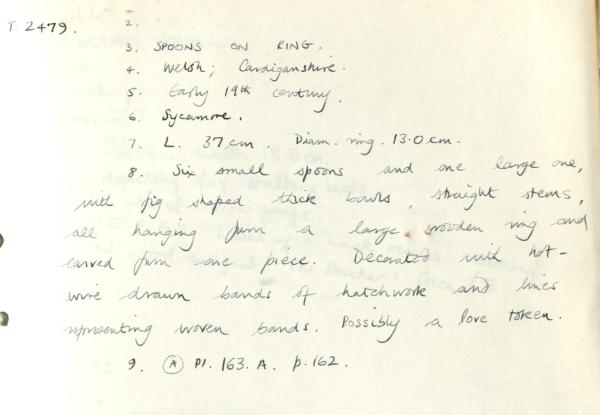 T. 2479.
2.
3. SPOONS ON RING.
4. Welsh; Cardiganshire.
5. Early 19th century.
6. Sycamore.
7. L. 37 cm. Diam. ring. 13.0 cm.
8. Six small spoons and one large one,
with fig shaped thick bowls, straight stems,
all hanging from a large wooden ring and
carved from one piece. Decorated with hot-
wire drawn bands of hatchwork and lines
representing woven bands. Possibly a love token.
9. (A) Pl. 163. A. p. 162.